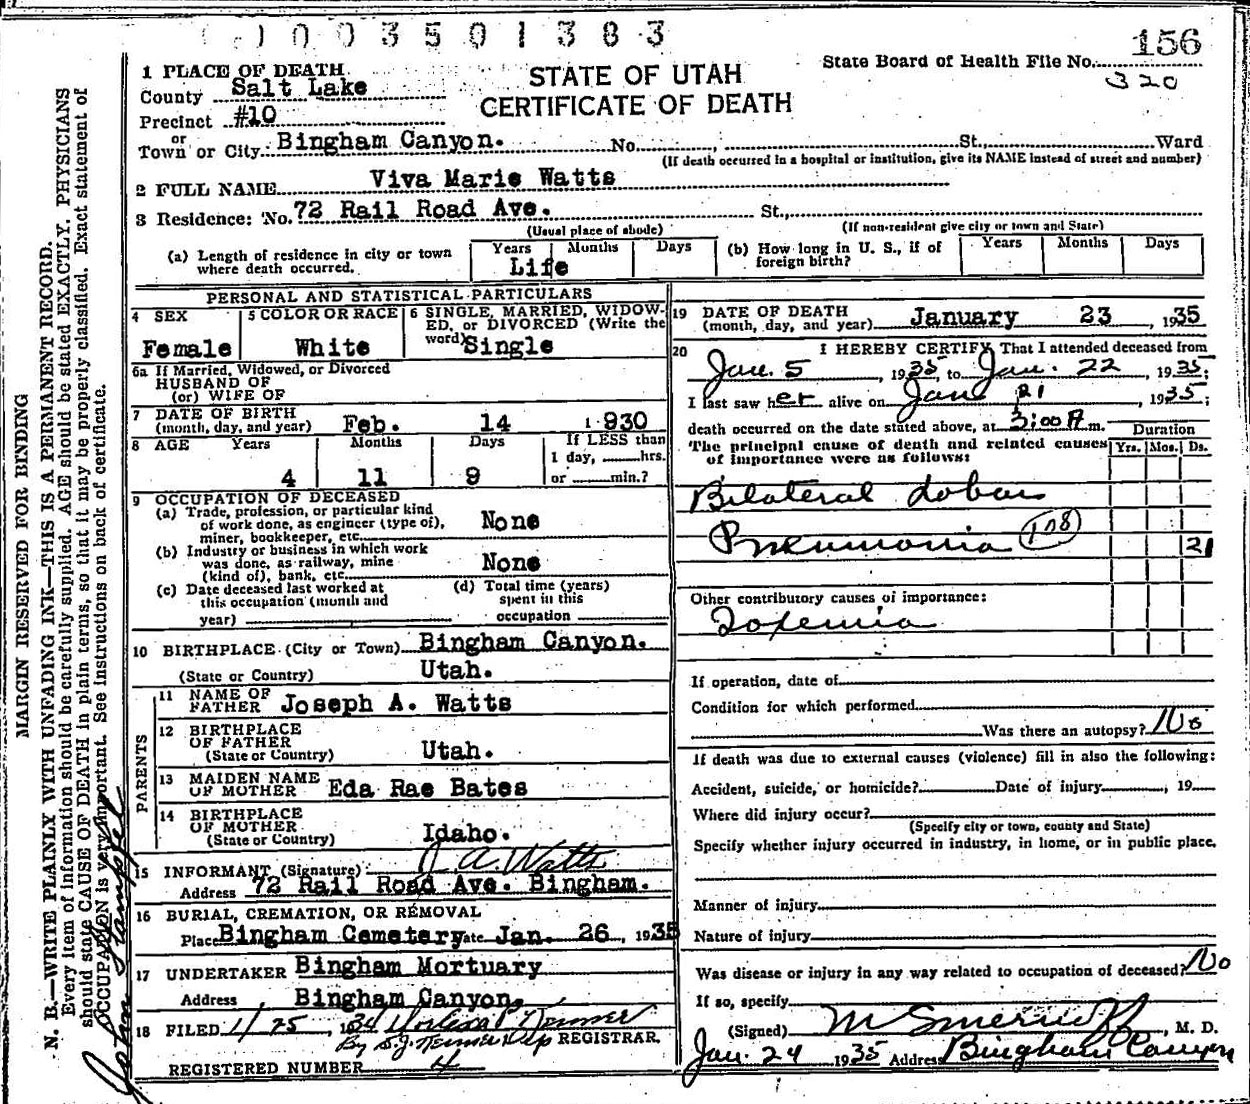 0 0 3 5 0 1 3 8 3
156
State Board of Health File No.
320
STATE OF UTAH
CERTIFICATE OF DEATH
1 PLACE OF DEATH
County Salt Lake
Precinct #10
or
Town or City Bingham Canyon. No. St., Ward
(If death occurred in a hospital or institution, give its NAME instead of street and number)
2 FULL NAME Viva Marie Watts
3 Residence: No. 72 Rail Road Ave. St.,
(Usual place of abode) (If non-resident give city or town and State)
(a) Length of residence in city or town where death occurred. Years Months Days
Life
(b) How long in U. S., if of foreign birth? Years Months Days
PERSONAL AND STATISTICAL PARTICULARS
4 SEX
Female
5 COLOR OR RACE
White
6 SINGLE, MARRIED, WIDOW-
ED, or DIVORCED (Write the
word) Single
6a If Married, Widowed, or Divorced
HUSBAND OF
(or) WIFE OF
7 DATE OF BIRTH
(month, day, and year) Feb. 14 1930
8 AGE Years Months Days If LESS than
1 day, hrs.
4 11 9 or min.?
9 OCCUPATION OF DECEASED
(a) Trade, profession, or particular kind
of work done, as engineer (type of),
miner, bookkeeper, etc. None
(b) Industry or business in which work
was done, as railway, mine
(kind of), bank, etc. None
(c) Date deceased last worked at
this occupation (month and
year)
(d) Total time (years)
spent in this
occupation
10 BIRTHPLACE (City or Town) Bingham Canyon.
(State or Country) Utah.
PARENTS
11 NAME OF
FATHER Joseph A. Watts
12 BIRTHPLACE
OF FATHER
(State or Country) Utah.
13 MAIDEN NAME
OF MOTHER Eda Rae Bates
14 BIRTHPLACE
OF MOTHER
(State or Country) Idaho.
15 INFORMANT (Signature) J. A. Watts
Address 72 Rail Road Ave. Bingham.
16 BURIAL, CREMATION, OR REMOVAL
Place Bingham Cemetery Date Jan. 26, 1935
17 UNDERTAKER Bingham Mortuary
Address Bingham Canyon.
18 FILED 1/25, 1934
By Dep REGISTRAR.
REGISTERED NUMBER 4
19 DATE OF DEATH
(month, day, and year) January 23, 1935
20 I HEREBY CERTIFY, That I attended deceased from
Jan. 5, 1935, to Jan. 22, 1935;
I last saw her alive on Jan 21, 1935;
death occurred on the date stated above, at 3:00 A m.
Duration
The principal cause of death and related causes
of importance were as follows: Yrs. Mos. Ds.
Bilateral Lobar
Pneumonia (108) 21
Other contributory causes of importance:
Toxemia
If operation, date of
Condition for which performed
Was there an autopsy? No
If death was due to external causes (violence) fill in also the following:
Accident, suicide, or homicide? Date of injury, 19
Where did injury occur?
(Specify city or town, county and State)
Specify whether injury occurred in industry, in home, or in public place.
Manner of injury
Nature of injury
Was disease or injury in any way related to occupation of deceased? No
If so, specify
(Signed), M. D.
Jan. 24 1935 Address Bingham Canyon
MARGIN RESERVED FOR BINDING
N. B.—WRITE PLAINLY WITH UNFADING INK—THIS IS A PERMANENT RECORD.
Every item of information should be carefully supplied. AGE should be stated EXACTLY. PHYSICIANS
should state CAUSE OF DEATH in plain terms, so that it may be properly classified. Exact statement of
OCCUPATION is very important. See instructions on back of certificate.